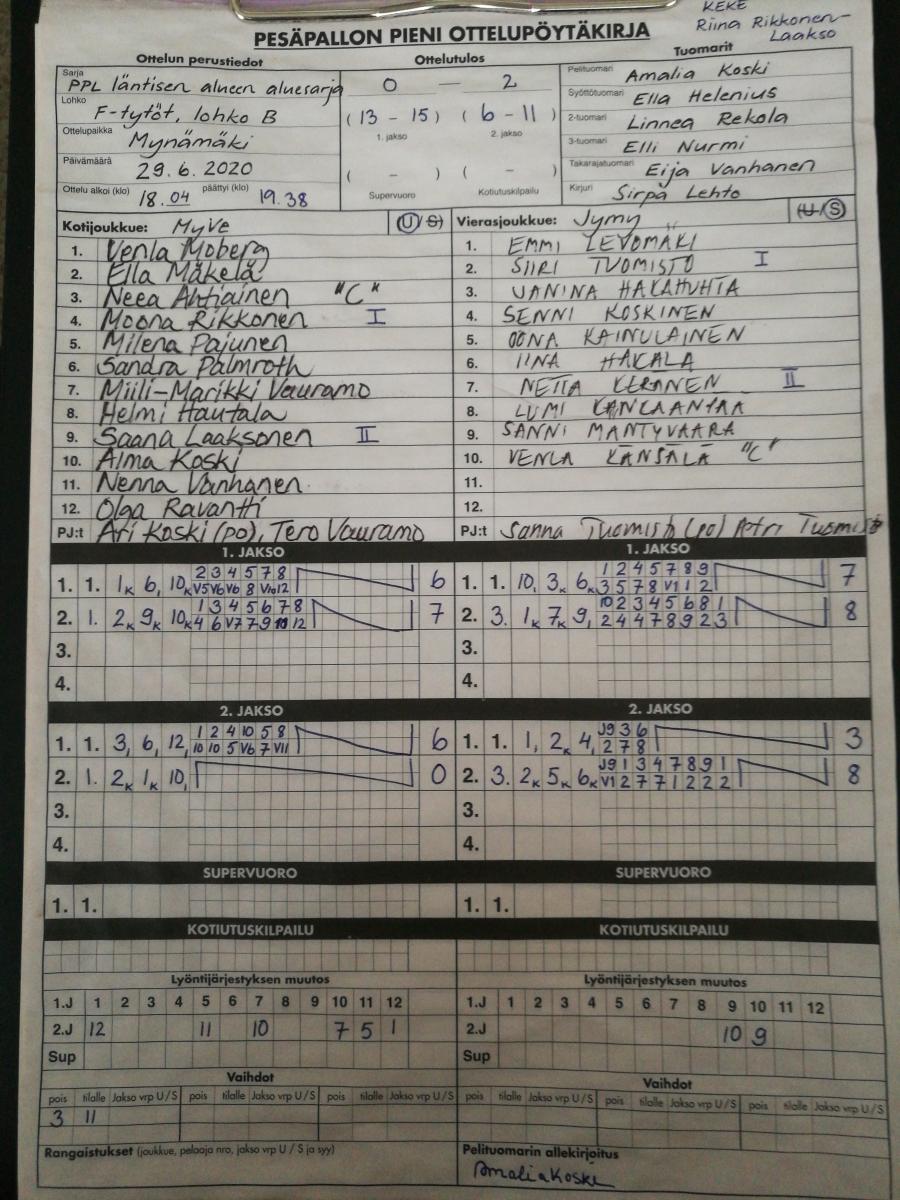 KEKE
Riina Rikkonen-
Laakso
PESÄPALLON PIENI OTTELUPÖYTÄKIRJA
Ottelun perustiedot
Ottelutulos
Tuomarit
Sarja PPL läntisen alueen aluesarja
0 — 2
Pelituomari Amalia Koski
Lohko F-tytöt, lohko B
(13 - 15) (6 - 11)
1. jakso 2. jakso
Syöttötuomari Ella Helenius
Ottelupaikka Mynämäki
2-tuomari Linnea Rekola
Päivämäärä 29.6.2020
( - ) ( - )
Supervuoro Kotiutuskilpailu
3-tuomari Elli Nurmi
Takarajatuomari Eija Vanhanen
Ottelu alkoi (klo) 18.04 päättyi (klo) 19.38
Kirjuri Sirpa Lehto
Kotijoukkue: MyVe (U/S)
1. Venla Moberg
2. Ella Mäkelä
3. Neea Ahtiainen "C"
4. Moona Rikkonen I
5. Milena Pajunen
6. Sandra Palmroth
7. Miili-Marikki Vauramo
8. Helmi Hautala
9. Saana Laaksonen II
10. Alma Koski
11. Nenna Vanhanen
12. Olga Ravantti
PJ:t Ari Koski (po), Tero Vauramo
Vierasjoukkue: Jymy (U/S)
1. EMMI LEVOMÄKI
2. SIIRI TUOMISTO I
3. JANINA HAKAHUHTA
4. SENNI KOSKINEN
5. OONA KAINULAINEN
6. IINA HAKALA
7. NETTA KERÄNEN II
8. LUMI KANKAANTAA
9. SANNI MÄNTYVAARA
10. VENLA KÄNSÄLÄ "C"
11.
12.
PJ:t Sanna Tuomisto (po) Petri Tuomisto
1. JAKSO
1. 1. 1K 6, 10K 2 3 4 5 7 8 6
V5 V6 V6 8 V10 12
2. 1. 2K 9K 10K 1 3 4 5 6 7 8 7
4 6 V7 7 9 10 12
3.
4.
1. JAKSO
1. 1. 10, 3K 6K 1 2 4 5 7 8 9 7
3 5 7 8 V1 1 2
2. 3. 1K 7K 9, 10 2 3 4 5 6 8 1 8
2 4 4 7 8 9 2 3
3.
4.
2. JAKSO
1. 1. 3, 6, 12, 1 2 4 10 5 8 6
10 10 5 V6 7 V11
2. 1. 2K 1K 10, 0
3.
4.
2. JAKSO
1. 1. 1, 2K 4, J9 3 6 3
2 7 8
2. 3. 2K 5K 6K J9 1 3 4 7 8 9 1 8
V1 2 7 7 1 2 2 2
3.
4.
SUPERVUORO
1. 1.
SUPERVUORO
1. 1.
KOTIUTUSKILPAILU
KOTIUTUSKILPAILU
Lyöntijärjestyksen muutos
1.J 1 2 3 4 5 6 7 8 9 10 11 12
2.J 12 11 10 7 5 1
Sup
Lyöntijärjestyksen muutos
1.J 1 2 3 4 5 6 7 8 9 10 11 12
2.J 10 9
Sup
Vaihdot
pois tilalle Jakso vrp U/S pois tilalle Jakso vrp U/S pois tilalle Jakso vrp U/S
3 11
Vaihdot
pois tilalle Jakso vrp U/S pois tilalle Jakso vrp U/S pois tilalle Jakso vrp U/S
Rangaistukset (joukkue, pelaaja nro, jakso vrp U / S ja syy)
Pelituomarin allekirjoitus
Amalia Koski